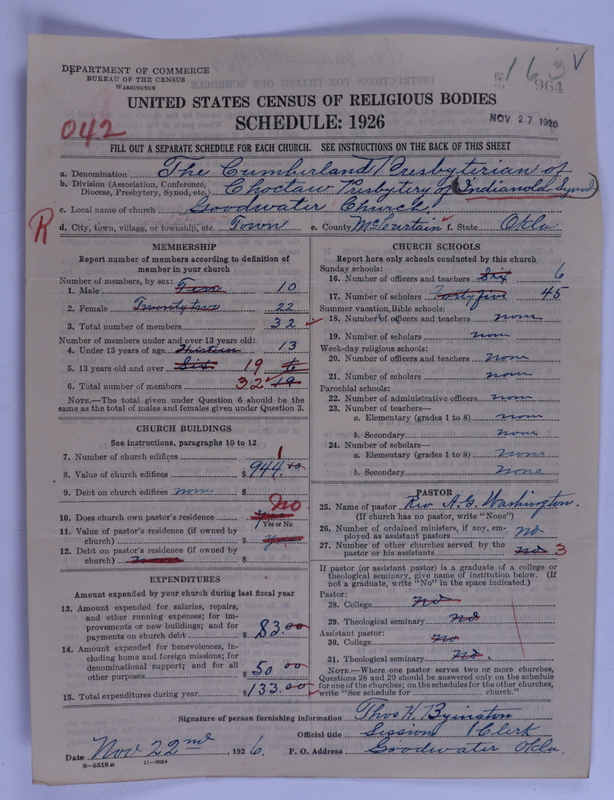 DEPARTMENT OF COMMERCE
BUREAU OF THE CENSUS
WASHINGTON
163 V
964
UNITED STATES CENSUS OF RELIGIOUS BODIES
SCHEDULE: 1926
NOV 27 1926
042
FILL OUT A SEPARATE SCHEDULE FOR EACH CHURCH. SEE INSTRUCTIONS ON THE BACK OF THIS SHEET
a. Denomination The Cumberland Presbyterian of
b. Division (Association, Conference, Diocese, Presbytery, Synod, etc.) Choctaw Presbytery of Indianola Synod
c. Local name of church Goodwater Church.
R
d. City, town, village, or township, etc. Town e. County McCurtain f. State Okla
MEMBERSHIP
Report number of members according to definition of
member in your church
Number of members, by sex:
1. Male Ten 10
2. Female Twenty two 22
3. Total number of members 32
Number of members under and over 13 years old:
4. Under 13 years of age Thirteen 13
5. 13 years old and over Six 19 6
6. Total number of members 32 19
NOTE.—The total given under Question 6 should be
same as the total of males and females given under Question 3.
CHURCH BUILDINGS
See instructions, paragraphs 10 to 12
7. Number of church edifices 1
8. Value of church edifices $ 944.
9. Debt on church edifices none $
10. Does church own pastor's residence No
Yes or No
11. Value of pastor's residence (if owned by
church) $
12. Debt on pastor's residence (if owned by
church) $
EXPENDITURES
Amount expended by your church during last fiscal year
13. Amount expended for salaries, repairs,
and other running expenses; for im-
provements or new buildings; and for
payments on church debt $ 83.00
14. Amount expended for benevolences, in-
cluding home and foreign missions; for
denominational support; and for all
other purposes $ 50 00
15. Total expenditures during year $ 133.00
CHURCH SCHOOLS
Report here only schools conducted by this church
Sunday schools:
16. Number of officers and teachers Six 6
17. Number of scholars Forty five 45
Summer vacation Bible schools:
18. Number of officers and teachers none
19. Number of scholars none
Week-day religious schools:
20. Number of officers and teachers none
21. Number of scholars none
Parochial schools:
22. Number of administrative officers none
23. Number of teachers—
a. Elementary (grades 1 to 8) none
b. Secondary none
24. Number of scholars—
a. Elementary (grades 1 to 8) none
b. Secondary none
PASTOR
25. Name of pastor Rev. A. G. Washington.
(If church has no pastor, write "None")
26. Number of ordained ministers, if any, em-
ployed as assistant pastors no
27. Number of other churches served by the
pastor or his assistants no 3
If pastor (or assistant pastor) is a graduate of a college or
theological seminary, give name of institution below. (If
not a graduate, write "No" in the space indicated.)
Pastor:
28. College no
29. Theological seminary no
Assistant pastor:
30. College no
31. Theological seminary no
NOTE.—Where one pastor serves two or more churches,
Questions 28 and 29 should be answered only on the schedule
for one of the churches; on the schedules for the other churches,
write "See schedule for church."
Signature of person furnishing information Thos H. Byington
Official title Session Clerk
Date Nov 22nd, 1926. P. O. Address Goodwater Okla.
8—5518a 11—9054